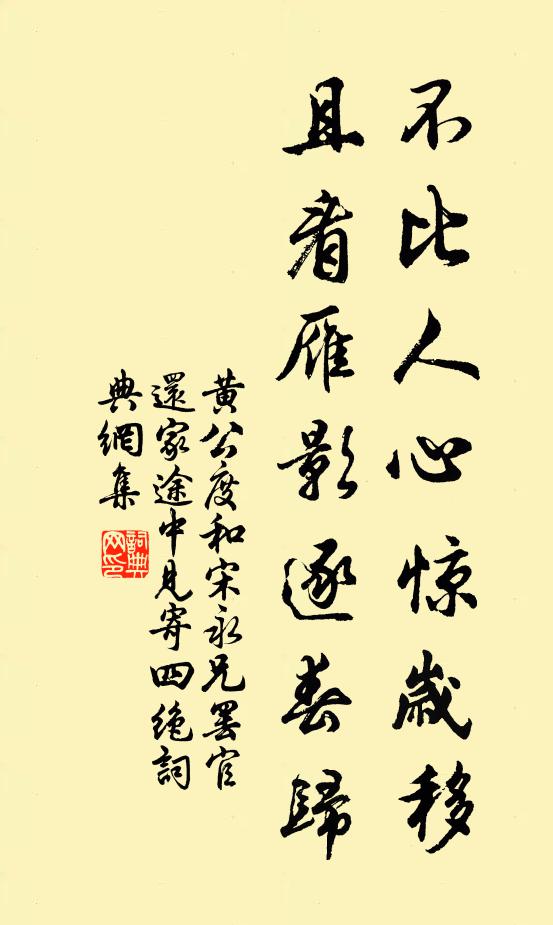 不比人心惊歲移
且看雁影逐春歸
黄公度和宋永兄罢官
還家途中見寄四絶詞
典網集
詞典网印